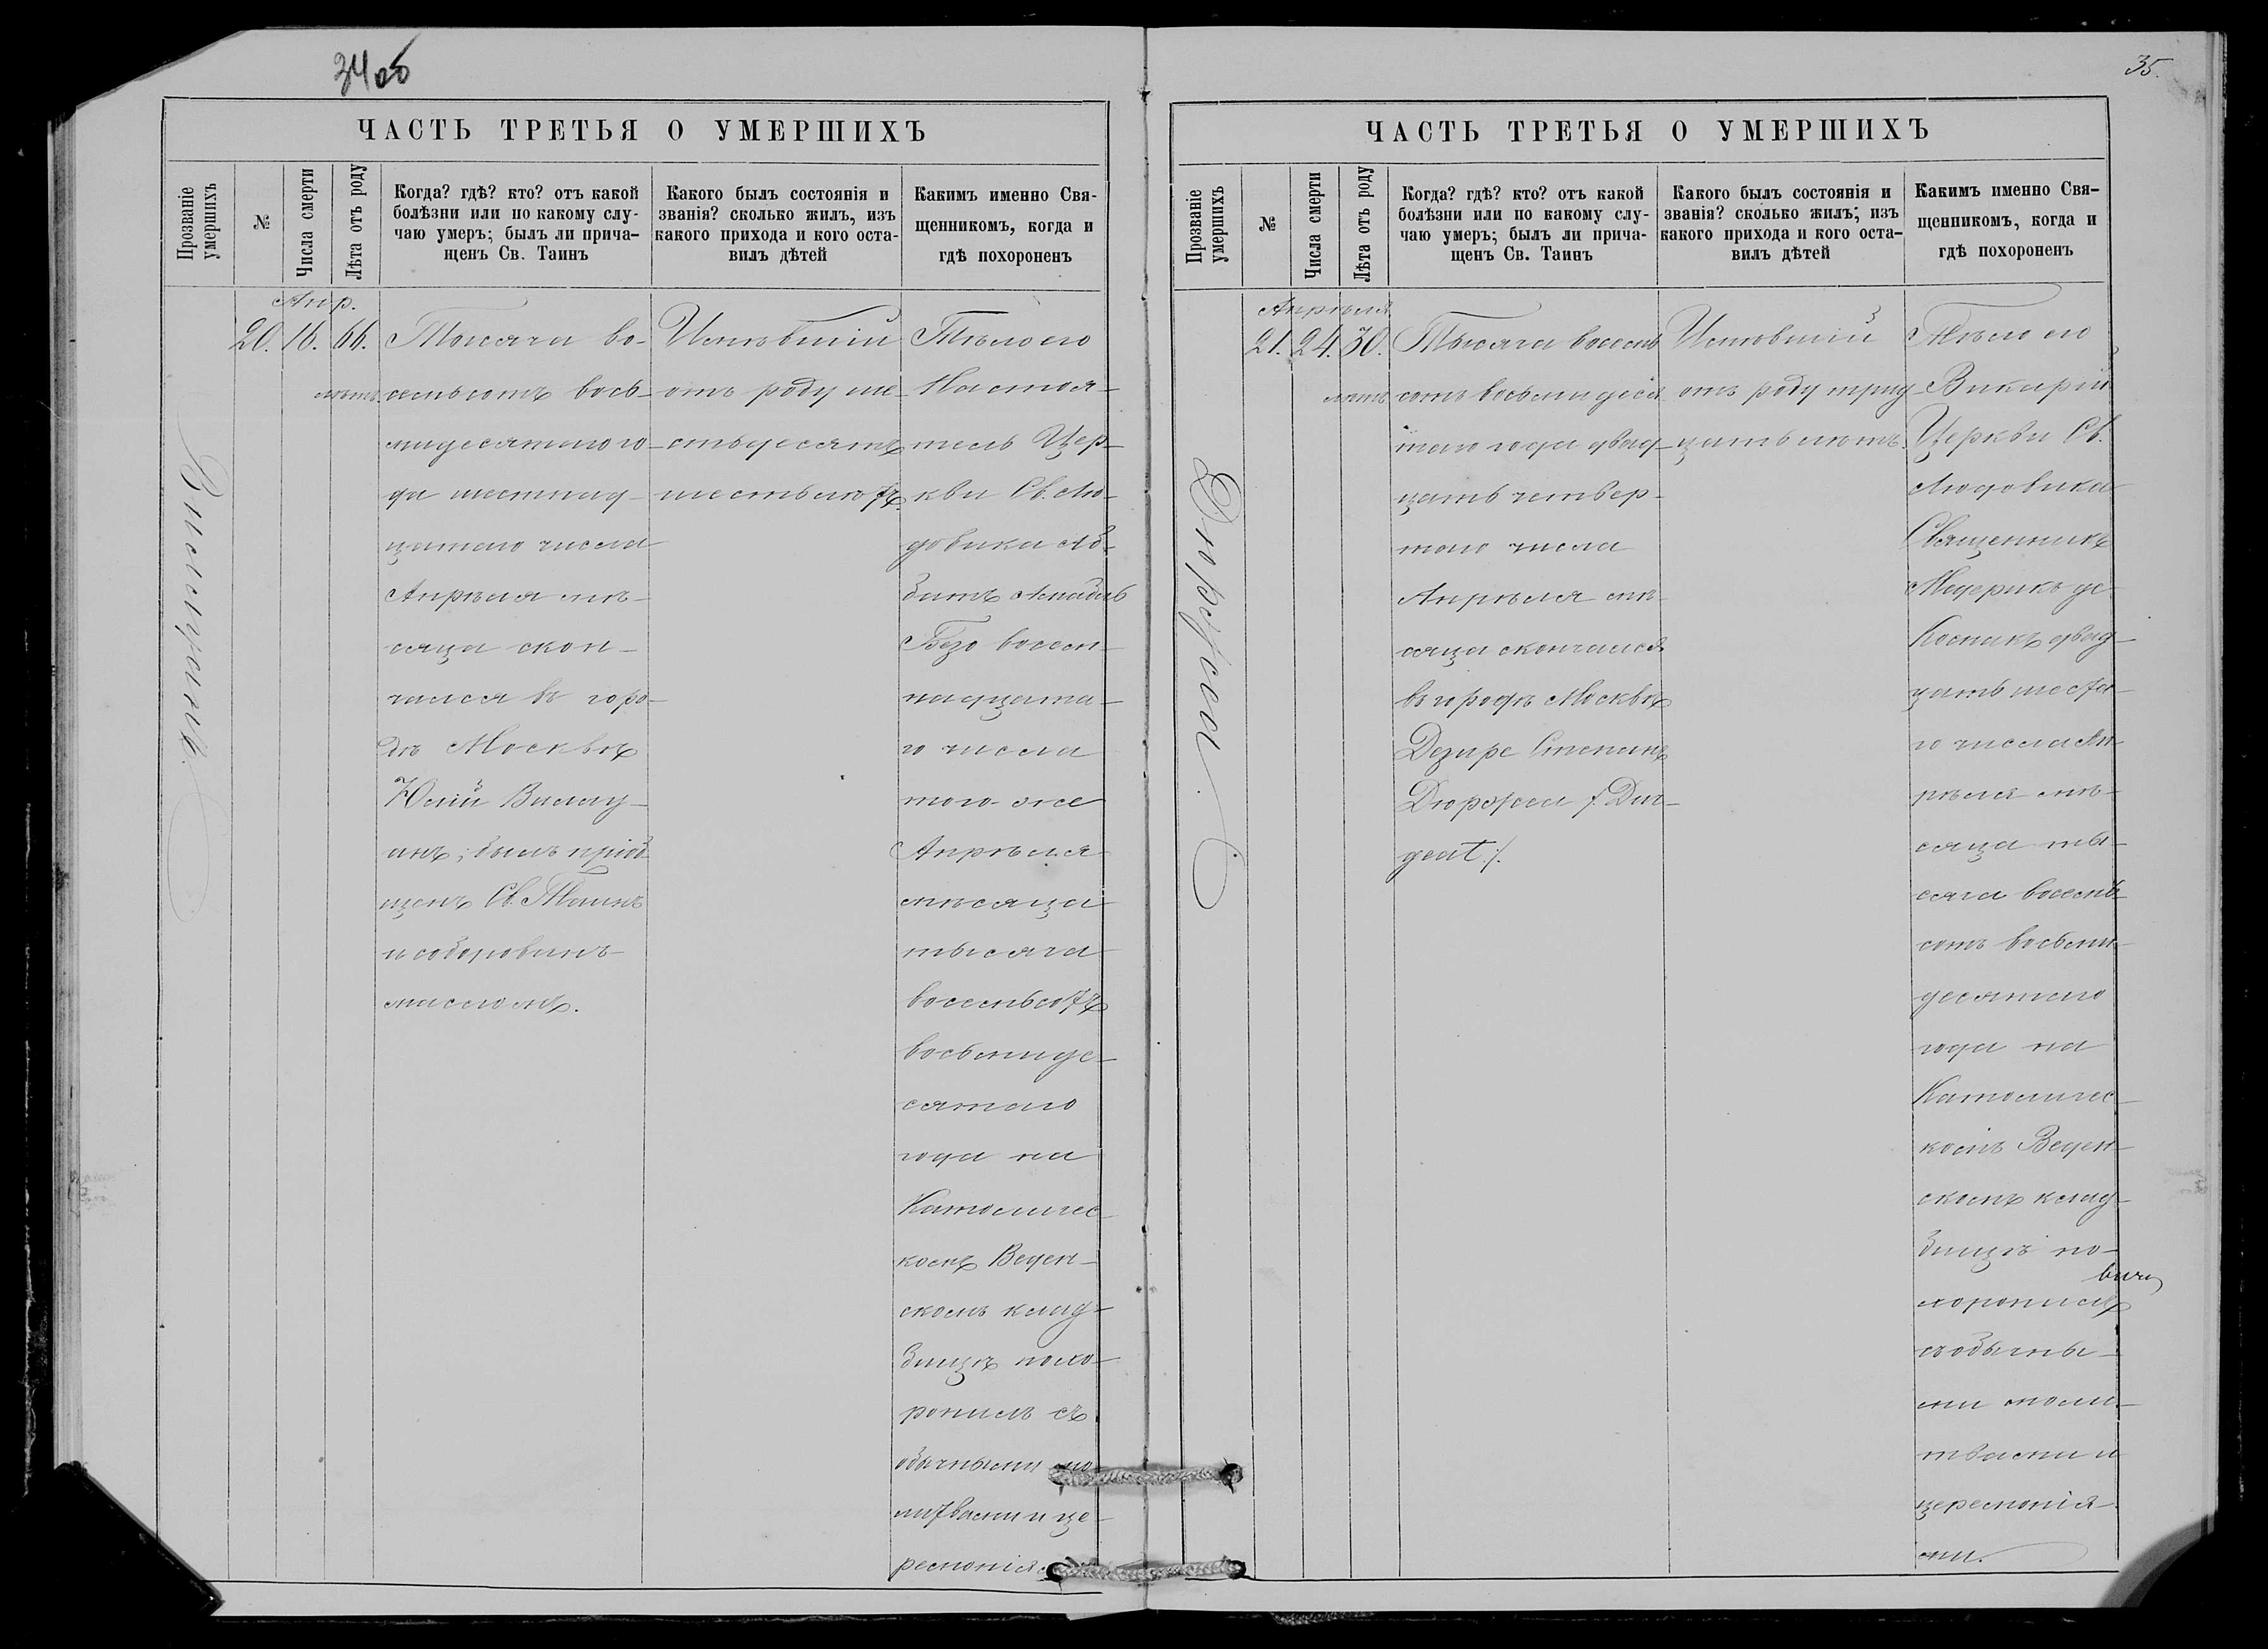 34 об
ЧАСТЬ ТРЕТЬЯ О УМЕРШИХЪ
Прозваніе умершихъ
№
Числа смерти
Лѣта отъ роду
Когда? гдѣ? кто? отъ какой
болѣзни или по какому слу-
чаю умеръ; былъ ли прича-
щенъ Св. Таинъ
Какого былъ состоянія и
званія? сколько жилъ, изъ
какого прихода и кого оста-
вилъ дѣтей
Какимъ именно Свя-
щенникомъ, когда и
гдѣ похороненъ
Апр.
20. 16. 66.
лѣтъ
Тысяча во-
семьсотъ вось-
мидесятаго го-
да шестнад-
цатаго числа
Апрѣля мѣ-
сяца скон-
чался въ горо-
дѣ Москвѣ
Юлій
анъ; былъ пріоб-
щенъ Св. Таинъ
и соборованъ
масломъ.
Имѣвшій
отъ роду ше-
стьдесятъ
шесть лѣтъ.
Тѣло его
Настоя-
тель Цер-
кви Св. Лю-
довика Аб-
батъ
восем-
надцата-
го числа
того-же
Апрѣля
мѣсяца
тысяча
восемьсотъ
восьмиде-
сятаго
года на
Католичес-
комъ Веден-
скомъ клад-
бищѣ похо-
ронилъ съ
обычными мо-
литвами и це-
ремонія
35.
ЧАСТЬ ТРЕТЬЯ О УМЕРШИХЪ
Прозваніе умершихъ
№
Числа смерти
Лѣта отъ роду
Когда? гдѣ? кто? отъ какой
болѣзни или по какому слу-
чаю умеръ; былъ ли прича-
щенъ Св. Таинъ
Какого былъ состоянія и
званія? сколько жилъ; изъ
какого прихода и кого оста-
вилъ дѣтей
Какимъ именно Свя-
щенникомъ, когда и
гдѣ похороненъ
Дюржеа.
Апрѣля
21. 24. 30.
лѣтъ
Тысяча восемь
сотъ восьмидеся
таго года двад-
цать четвер-
таго числа
Апрѣля мѣ-
сяца скончался
въ городѣ Москвѣ
Дезире Степанъ
Дюржеа /: Dur-
geat :/.
Имѣвшій
отъ роду трид-
цать лѣтъ.
Тѣло его
Викарій
Церкви Св.
Людовика
Священникъ
Медерикъ де
Коснакъ двад-
цать шеста-
го числа Ап-
рѣля мѣ-
сяца ты-
сяча восемь-
сотъ восьми-
десятаго
года на
Католичес-
комъ Веден-
скомъ клад-
бищѣ по-
хоронилъ
съ обычны-
ми моли-
твами и
церемонія-
ми.